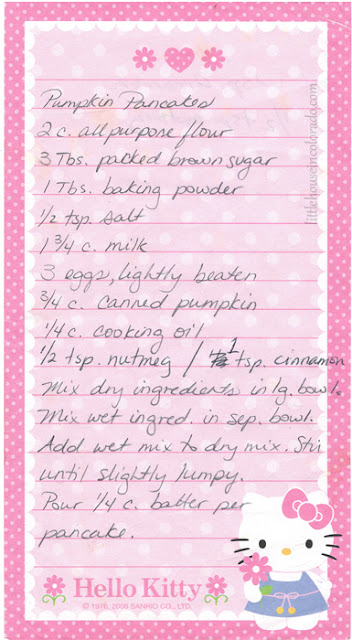 Pumpkin Pancakes
2 c. all purpose flour
3 Tbs. packed brown sugar
1 Tbs. baking powder
1/2 tsp. salt
1 3/4 c. milk
3 eggs, lightly beaten
3/4 c. canned pumpkin
1/4 c. cooking oil
1/2 tsp. nutmeg / 1 tsp. cinnamon
Mix dry ingredients in lg. bowl.
Mix wet ingred. in sep. bowl.
Add wet mix to dry mix. Stir
until slightly lumpy.
Pour 1/4 c. batter per
pancake.
Hello Kitty
© 1976, 2006 SANRIO CO., LTD.
littlehouseincolorado.com